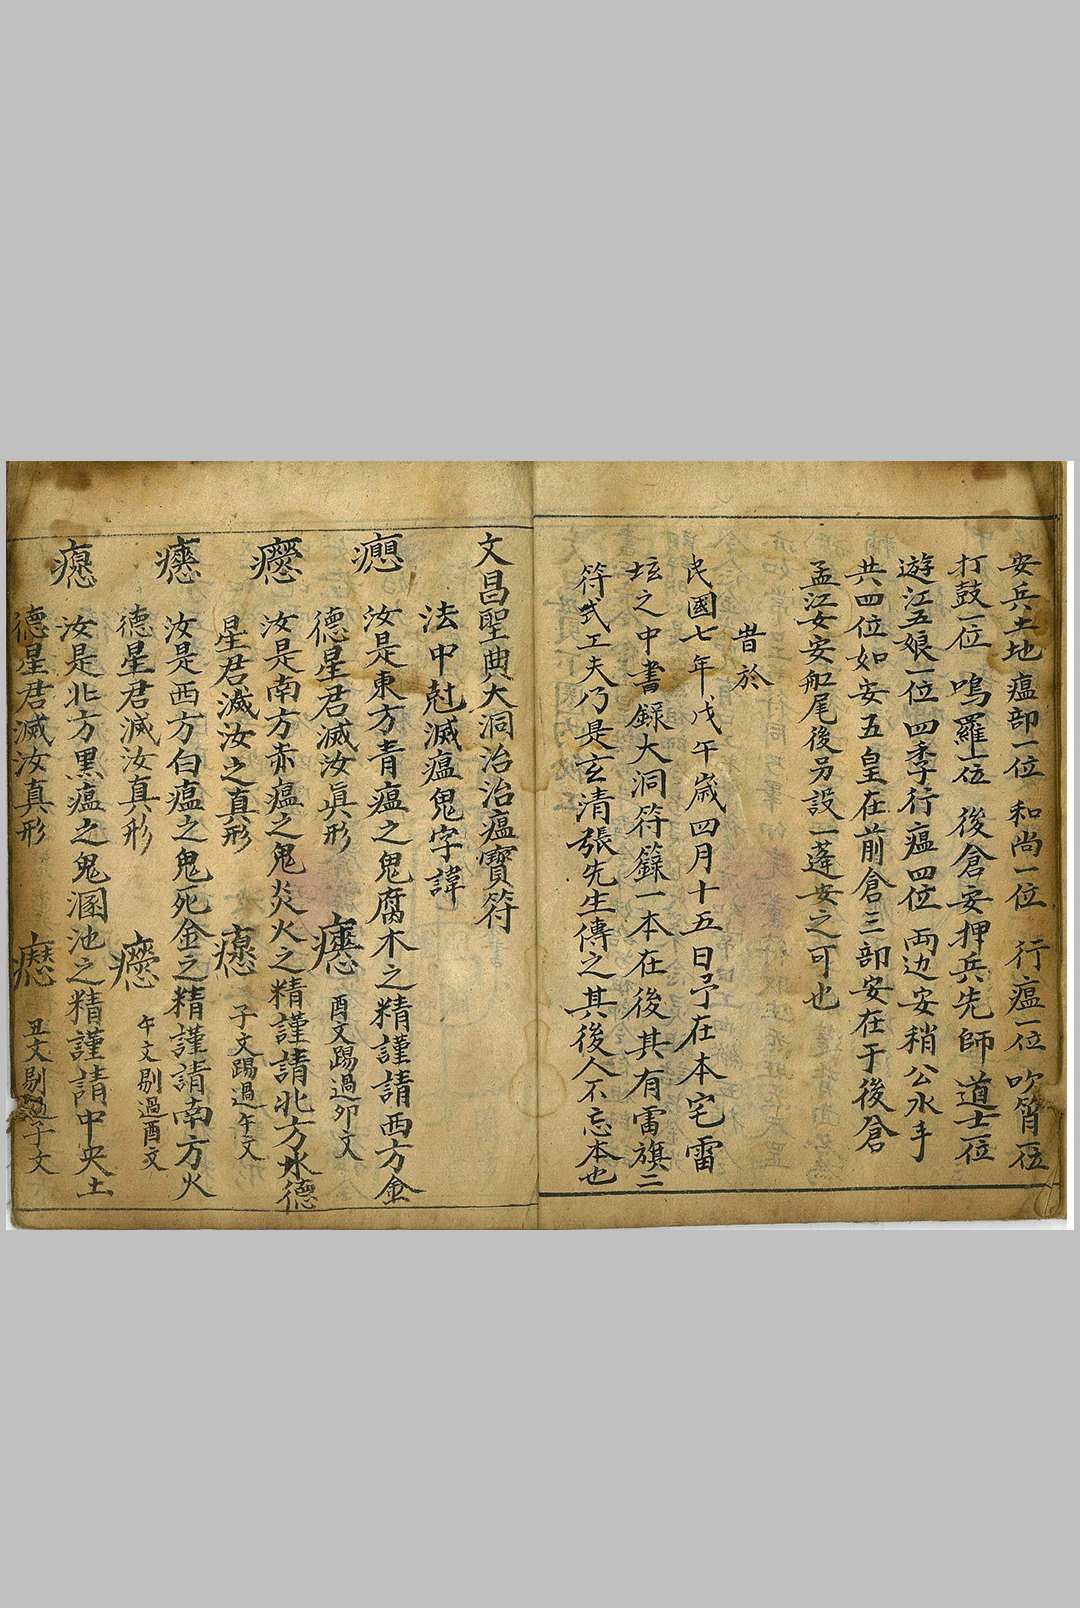 安兵土地瘟部一位 和尚一位 行瘟一位 吹筲一位
打鼓一位 鳴羅一位 後倉安押兵先師 道士一位
遊江五娘一位 四季行瘟四位 両边安稍公水手
共四位如安五皇在前倉三部安在于後倉
孟江女安船尾後另設一蓬安之可也
昔於
民國七年戊午歲四月十五日予在本宅雷
坛之中書錄大洞符籙一本在後其有雷旗二
符式工夫乃是玄清張先生傳之其後人不忘本也
文昌聖典大洞治治瘟寶符
法中尅滅瘟鬼字諱
汝是東方青瘟之鬼腐木之精謹請西方金
德星君滅汝眞形 酉文踢過卯文
汝是南方赤瘟之鬼炎火之精謹請北方水德
星君滅汝之真形 子文踢過午文
汝是西方白瘟之鬼死金之精謹請南方火
德星君滅汝真形 午文剔過酉文
汝是北方黒瘟之鬼溷池之精謹請中央土
德星君滅汝真形 丑文剔過子文